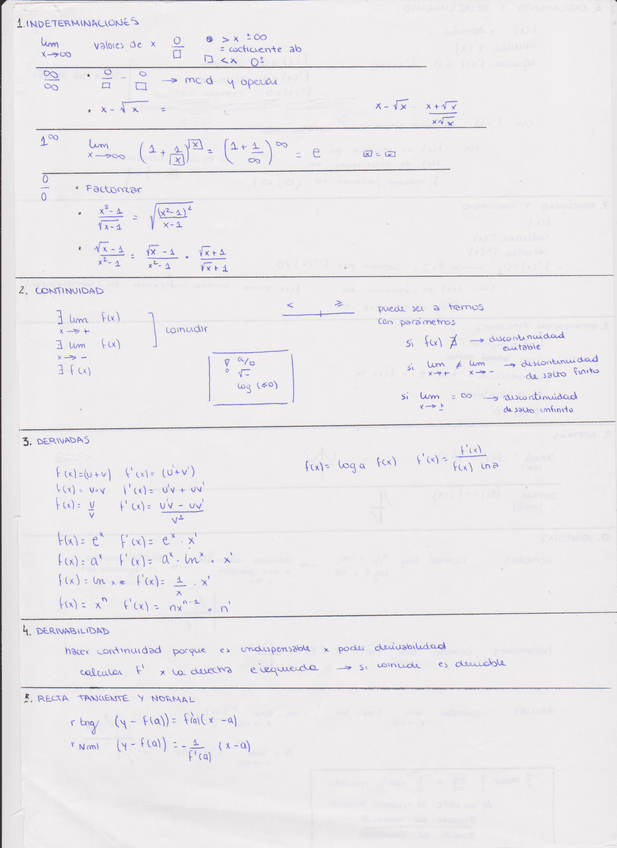 1. INDETERMINACIONES
lim x→∞ valores de x 0/□ • > x ±∞
= cociente ab
□ < x 0±
∞/∞ • 0/□ - 0/□ → mcd y operar
• x - √x = x - √x · x+√x / x√x
1^∞ lim x→∞ (1 + 1/√x)^√x = (1 + 1/∞)^∞ = e
0/0 • Factorizar
• x²-1 / √x-1 = √(x²-1)² / x-1
• √x-1 / x²-1 = √x-1 / x²-1 · √x+1 / √x+1
2. CONTINUIDAD
∃ lim x→+ f(x)
∃ lim x→- f(x)
] coincidir
∃ f(x)
< ≥
a/0
√-
log (≤0)
puede ser a trozos
con parámetros
si f(x) ∄ → discontinuidad evitable
si lim x→+ ≠ lim x→- → discontinuidad de salto finito
si lim x→± = ∞ → discontinuidad de salto infinito
3. DERIVADAS
f(x)=(u+v) f'(x)= (u'+v')
f(x)= u·v f'(x)= u'v + uv'
f(x)= u/v f'(x)= u'v - uv' / v²
f(x)= log a f(x) f'(x)= f'(x) / f(x) ln a
f(x)= e^x f'(x)= e^x · x'
f(x)= a^x f'(x)= a^x · ln^x · x'
f(x)= ln x f'(x)= 1/x · x'
f(x)= x^n f'(x)= nx^(n-1) · n'
4. DERIVABILIDAD
hacer continuidad porque es indispensable x poder derivabilidad
calcular f' x la derecha e izquierda → si coincide es derivable
5. RECTA TANGENTE Y NORMAL
r tng (y - f(a)) = f'(a) (x - a)
r Nrml (y - f(a)) = - 1/f'(a) (x - a)